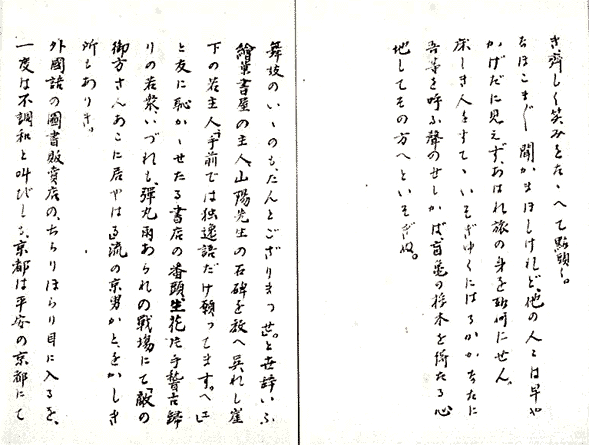 き、齊しく笑みをたゝへて點頭く。
なほこまごま聞かまほしけれど、他の人々は早や
かげだに見えず、あはれ旅の身を如何にせん。
床しき人をすてゝいそぎゆくにはるかかなたに
吾等を呼ぶ聲のせしかば盲亀の浮木を得たる心
地してその方へといそぎぬ。
舞妓のいゝのも、たんとござりまつせ。と世辞いふ
繪葉書屋の主人、山陽先生の石碑を教へ呉れし崖
下の若主人、「手前では独逸語だけ願つてます。へい」
と友に恥かゝせたる書店の番頭、生花片手誓古歸
りの若衆、いづれも、彈丸雨あられの戰場にて「敵の
御方さんあこに居やはる」流の京男かと、をかしき
所もありき。
外國語の圖書販賣店の、ちらりほらり目に入るを、
一度は不調和と叫びしも、京都は平安の京都にて